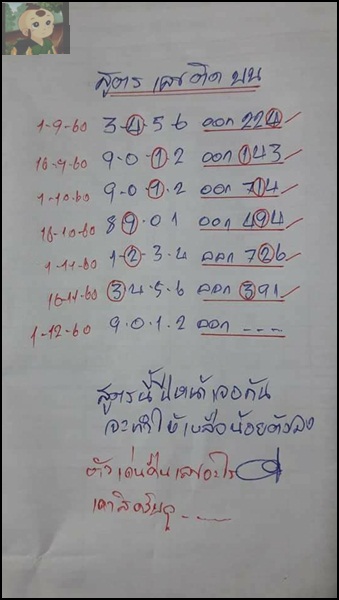 สูตร เลขติด บน
1-9-60 3-4-5-6 ออก 224
16-9-60 9-0-1-2 ออก 143
1-10-60 9-0-1-2 ออก 714
16-10-60 8 9-0 1 ออก 494
1-11-60 1-2-3-4 ออก 726
16-11-60 3 4-5-6 ออก 391
1-12-60 9-0-1-2 ออก - - -
สูตรนี้ปีหน้าเจอกัน
จะทำให้เหลือน้อยตัวลง
ตัวเด่นเป็นเลขอะไร